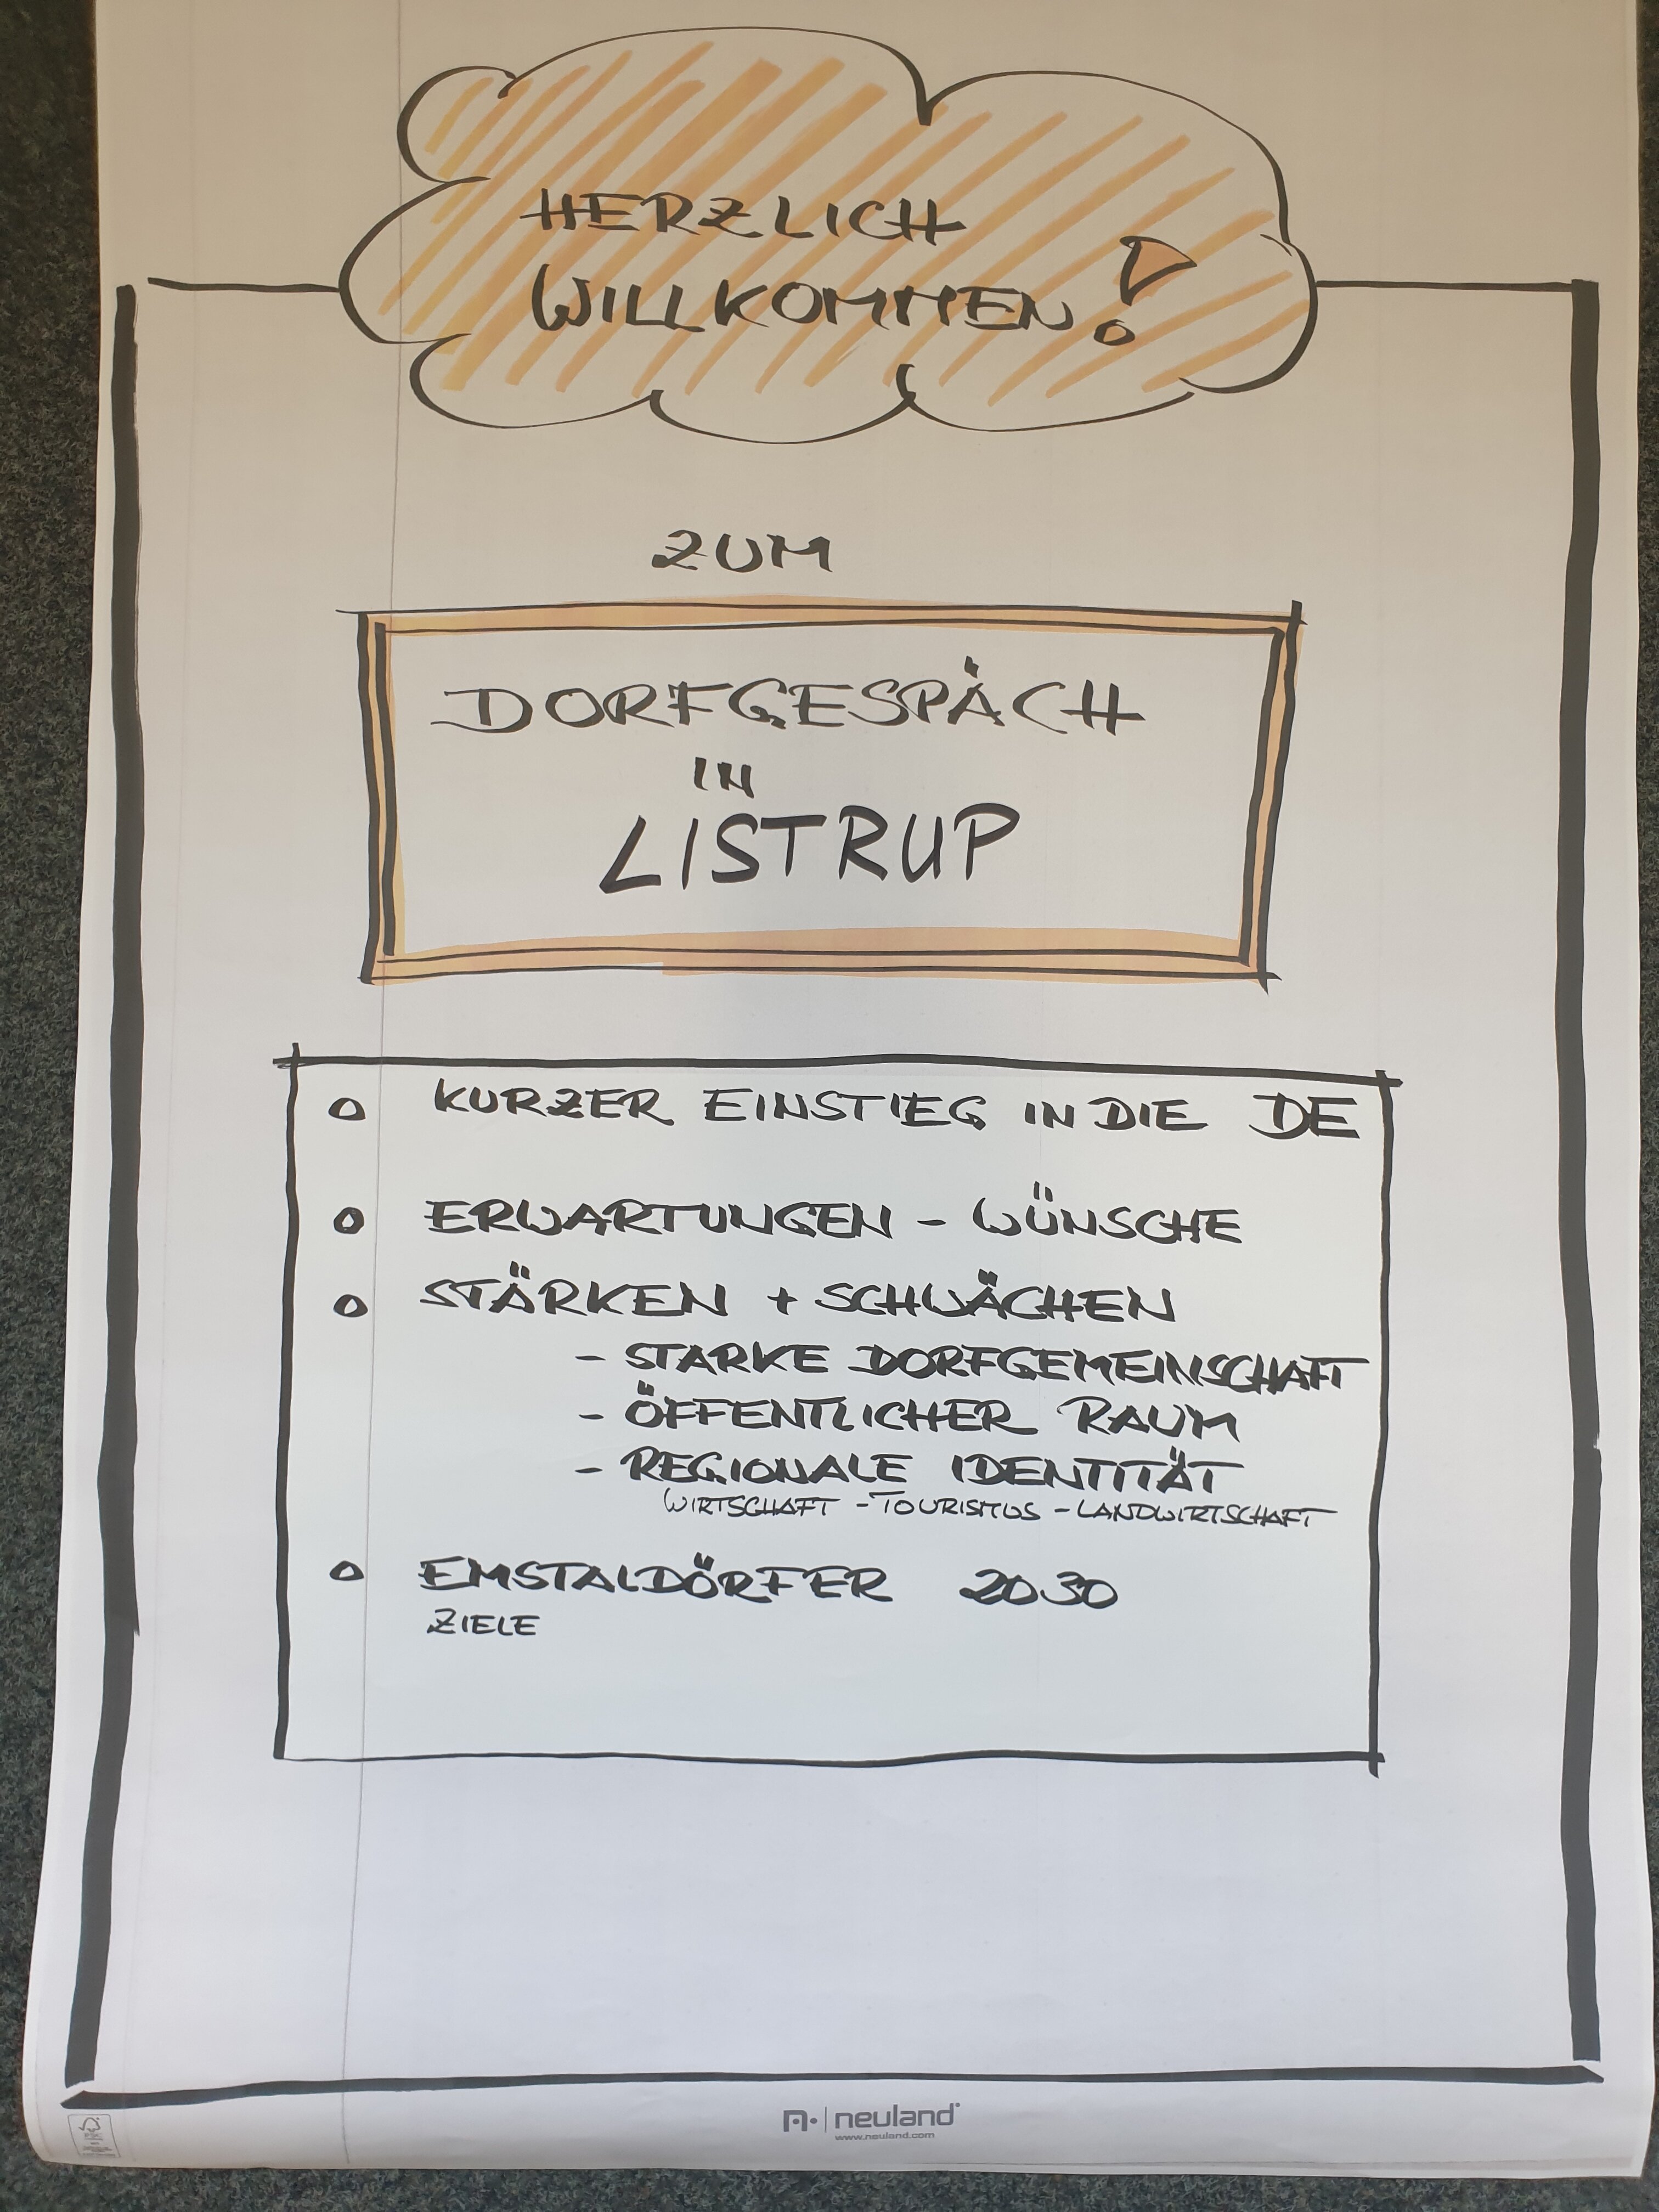 HERZLICH
WILLKOMMEN!
ZUM
DORFGESPÄCH
IN
LISTRUP
o KURZER EINSTIEG IN DIE DE
o ERWARTUNGEN - WÜNSCHE
o STÄRKEN + SCHWÄCHEN
- STARKE DORFGEMEINSCHAFT
- ÖFFENTLICHER RAUM
- REGIONALE IDENTITÄT
WIRTSCHAFT - TOURISMUS - LANDWIRTSCHAFT
o EMSTALDÖRFER 2030
ZIELE
neuland
www.neuland.com